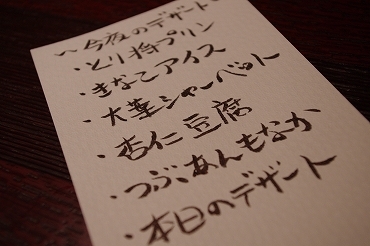 〜今夜のデザート
・とり将プリン
・きなこアイス
・大葉シャーベット
・杏仁豆腐
・つぶあんもなか
・本日のデザート